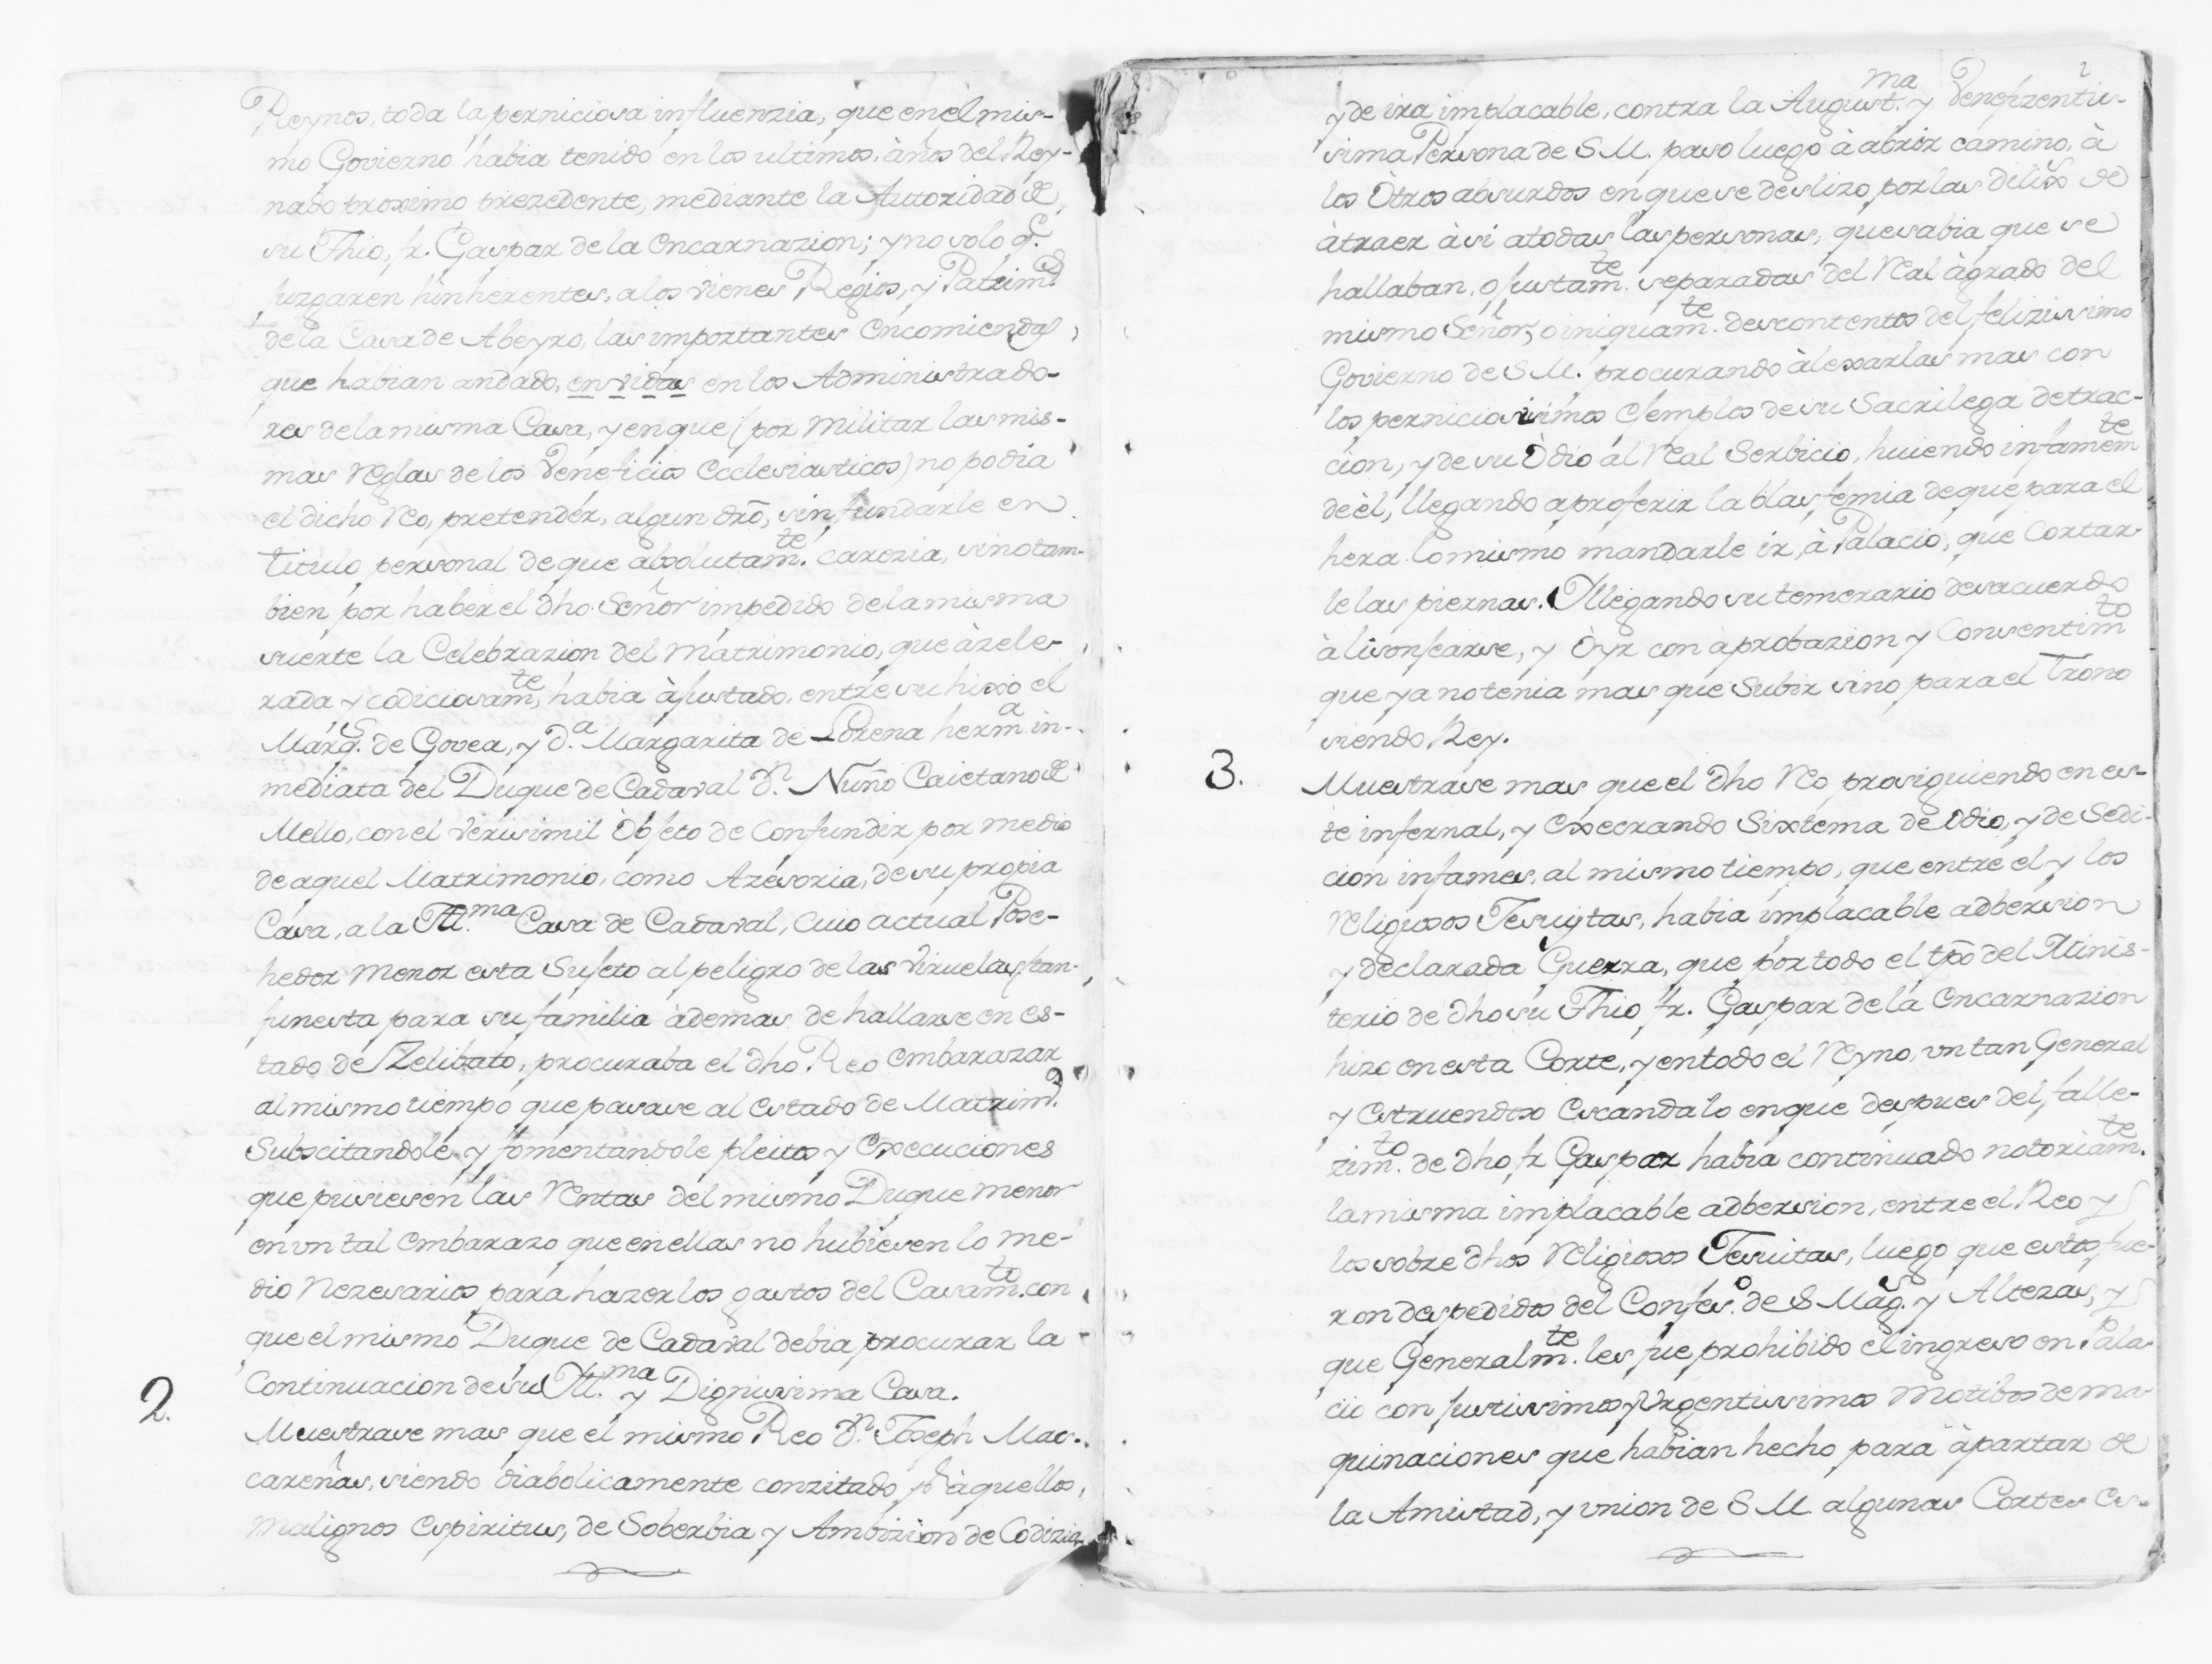 Reynos, toda la perniciosa influenzia, que en el mis-
mo Govierno habia tenido en los ultimos, años del Rey-
nado proximo prezedente, mediante la Autoridad de
su Thio, fr. Gaspar de la Encarnazion; y no solo q.e
juzgaren hinherentes, a los vienes Regios, y Patrim.s
de la Casa de Abeyro, las importantes Encomiendas,
que habian andado, en vidas en los Administrado-
res de la misma Casa, y en que (por militar las mis-
mas Reglas de los Veneficios Ecclesiasticos) no podia
el dicho Reo, pretender, algun dro, sin fundarle en
titulo personal de que absolutam.te carezia, sino tam-
bien por haber el dho Señor impedido de la misma
suerte la Celebrazion del Matrimonio, que àzele-
rada y codiciosam.te, habia àjustado, entre su hixo el
Marq.s de Govea, y D.a Margarita de Lorena herm.a in-
mediata del Duque de Cadaval D.n Nuño Caietano de
Mello, con el Verisimil Objeto de Confundir por medio
de aquel Matrimonio, como Azesoria, de su propia
Casa, a la Ill.ma Casa de Cadaval, Cuio actual Pose-
hedor Menor esta Sujeto al peligro de las Viruelas, tan
funesta para su familia àdemas de hallarse en es-
tado de Zelibato, procuraba el dho Reo Embarazar
al mismo tiempo que pasase al Estado de Matrim.o
Subscitandole y fomentandole pleitos y Execuciones
que pusiesen las Rentas del mismo Duque menor
en vn tal Embarazo que en ellas no hubiesen lo me-
dio Nezesarios para hazer los gastos del Casam.to con
que el mismo Duque de Cadaval debia procurar la
Continuacion de su Ill.ma y Dignissima Casa.
2. Muestrase mas que el mismo Reo D.n Joseph Mas-
careñas, siendo diabolicamente conzitado p.r àquellos,
malignos Espiritus, de Soberbia y Ambizion de Codizia,
2
y de ira implacable, contra la August.ma y Venefizentis-
sima Persona de S M. paso luego à abrir camino, à
los Òtros absurdos en que se deslizo, por las dilix.s de
àtraer à si a todas las personas, que sabia que se
hallaban, o justam.te separadas del Real àgrado del
mismo Señor, o iniquam.te descontentos del felizissimo
Govierno de S M. procurando àlexarlas mas con
los perniciosisimos Ejemplos de su Sacrilega detrac-
cion, y de su Òdio al Real Serbicio, huiendo infamem.te
de èl, llegando a proferir la blasfemia de que para el
hera lo mismo mandarle ir, à Palacio, que Cortar-
le las piernas. Y llegando su temerario desacuerdo
à lisonjearse, y Òyr con àprobazion y Consentim.to
que ya no tenia mas que Subir sino para el Trono
siendo Rey.
3. Muestrase mas que el dho Reo prosiguiendo en es-
te infernal, y Execrando Sixtema de Odio, y de Sedi-
cion infames, al mismo tiempo, que entre el y los
Religiosos Jesuytas, habia implacable adbersion
y declarada Guerra, que por todo el tpo del Minis-
terio de dho su Thio fr. Gaspar de la Encarnazion
hizo en esta Corte, y en todo el Reyno, vn tan General
y Estruendoso Escandalo en que despues del falle-
zim.to de dho fr Gaspar habia continuado notoriam.te
la misma implacable adbersion, entre el Reo y
los sobre dhos Religiosos Jesuitas, luego que estos fue-
ron despedidos del Confes.o de S Mag.s y Altezas, y
que Generalm.te les fue prohibido el ingreso en Pala-
cio con justissimos y Vrgentissimos Motibos de ma-
quinaciones que habian hecho para àpartar de
la Amistad, y vnion de S M algunas Cortes Es-